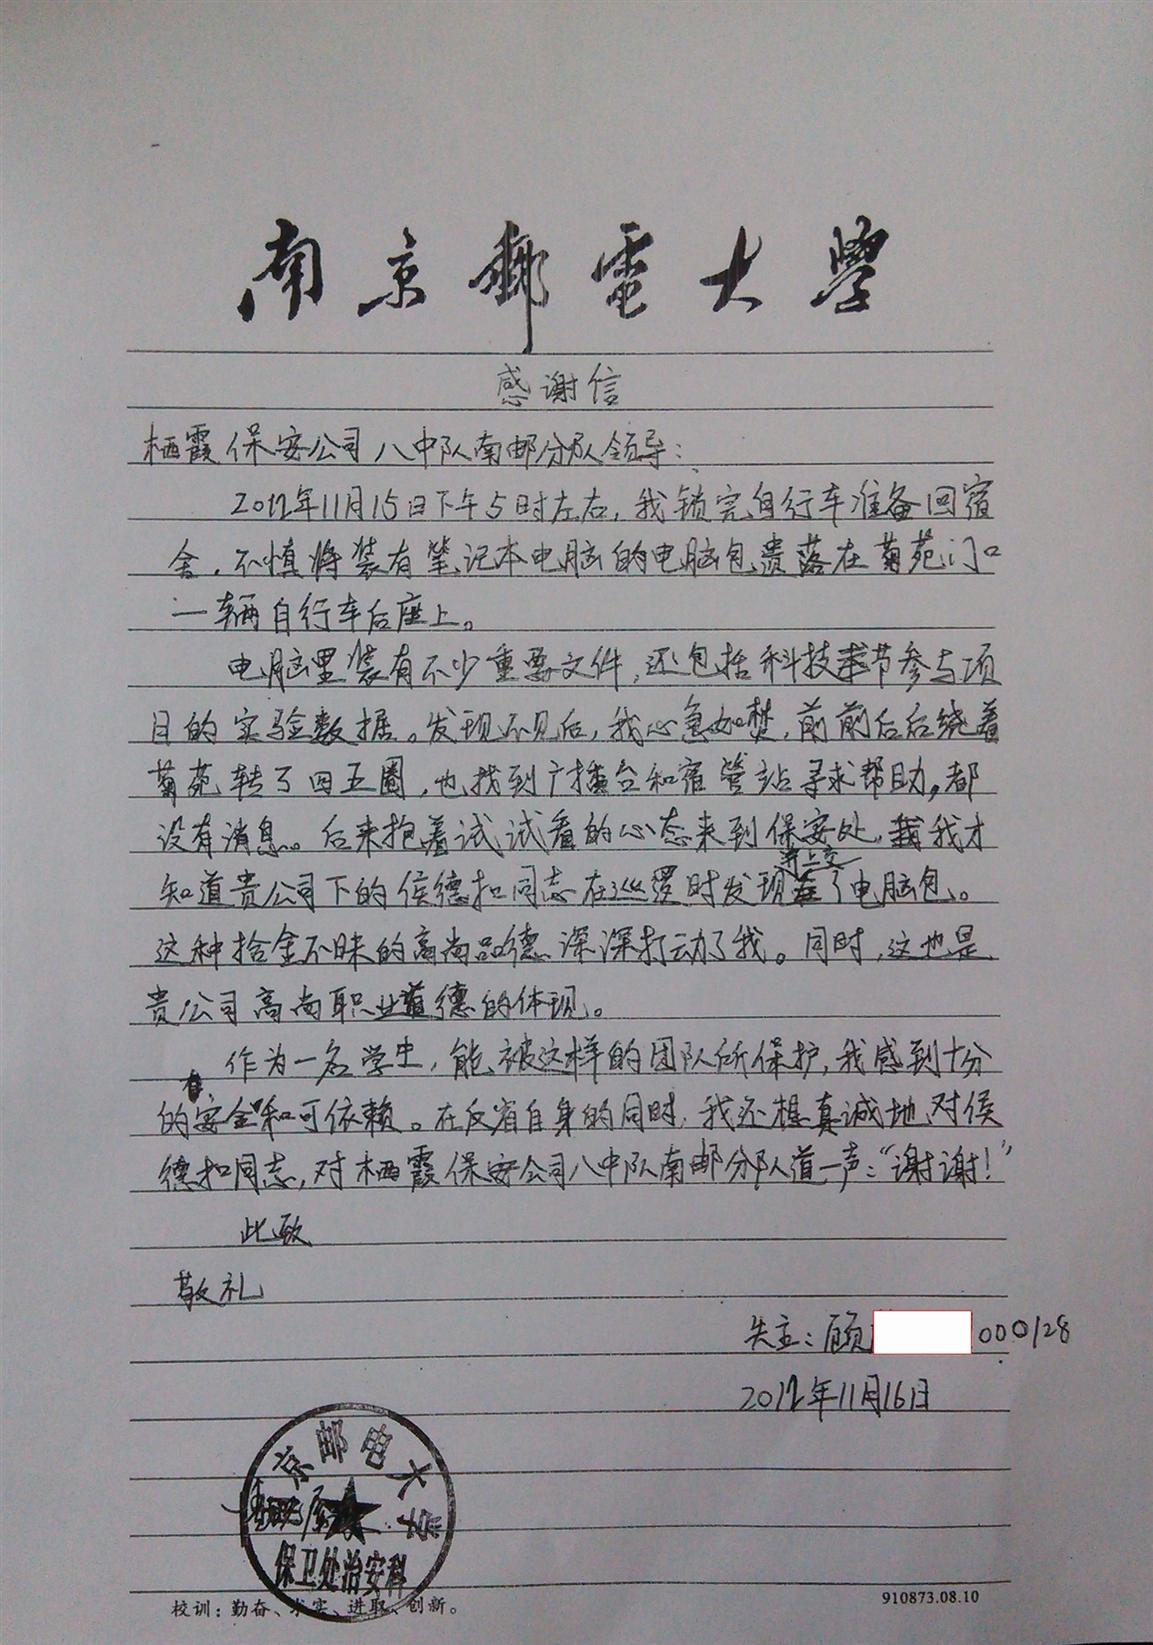 南京郵電大學
感谢信
栖霞保安公司八中队南邮分队领导：
2012年11月15日下午5时左右，我锁完自行车准备回宿
舍，不慎将装有笔记本电脑的电脑包遗落在菊苑门口
一辆自行车后座上。
电脑里装有不少重要文件，还包括科技节参与项
目的实验数据。发现不见后，我心急如焚，前前后后绕着
菊苑转了四五圈，也找到广播台和宿管站寻求帮助，都
没有消息。后来抱着试试看的心态来到保安处，我才
知道贵公司下的侯德扣同志在巡逻时发现并上交了电脑包。
这种拾金不昧的高尚品德深深打动了我。同时，这也是
贵公司高尚职业道德的体现。
作为一名学生，能被这样的团队所保护，我感到十分
的安全和可依赖。在反省自身的同时，我还想真诚地对侯
德扣同志，对栖霞保安公司八中队南邮分队道一声：“谢谢！”
此致
敬礼
失主：顾 000128
2012年11月16日
京邮电大学
保卫处治安科
校训：勤奋、求实、进取、创新。
910873.08.10